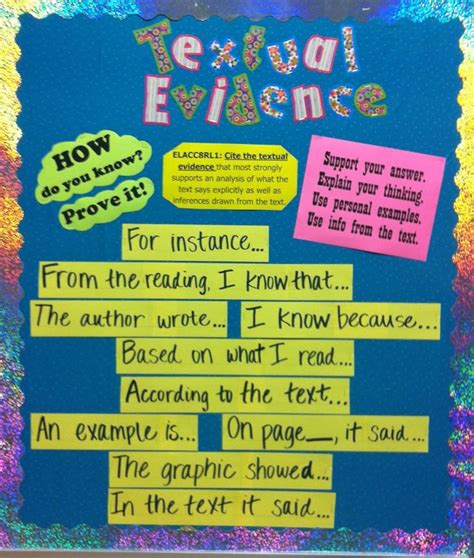 Textual
Evidence
HOW
do you know?
Prove it!
ELACC8RL1: Cite the textual
evidence that most strongly
supports an analysis of what the
text says explicitly as well as
inferences drawn from the text.
Support your answer.
Explain your thinking.
Use personal examples.
Use info from the text.
For instance...
From the reading, I know that...
The author wrote...
I know because...
Based on what I read...
According to the text...
An example is...
On page__, it said...
The graphic showed...
In the text it said...